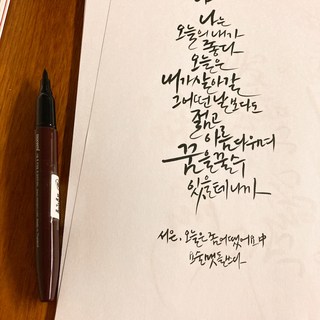 나는
오늘의 내가
좋다
오늘은
내가 살아갈
그 어떤 날보다도
젊고
아름다우며
꿈을 꿀 수
있을테니까
서은, 오늘은 좀 어땠어요